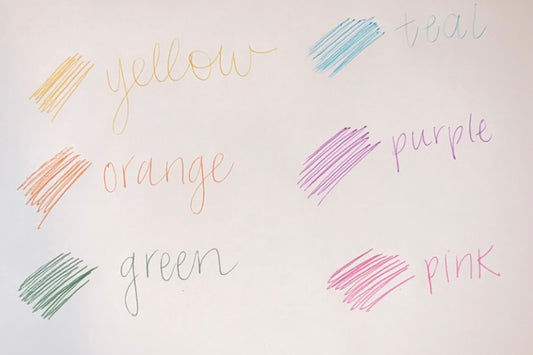 yellow
orange
green
teal
purple
pink